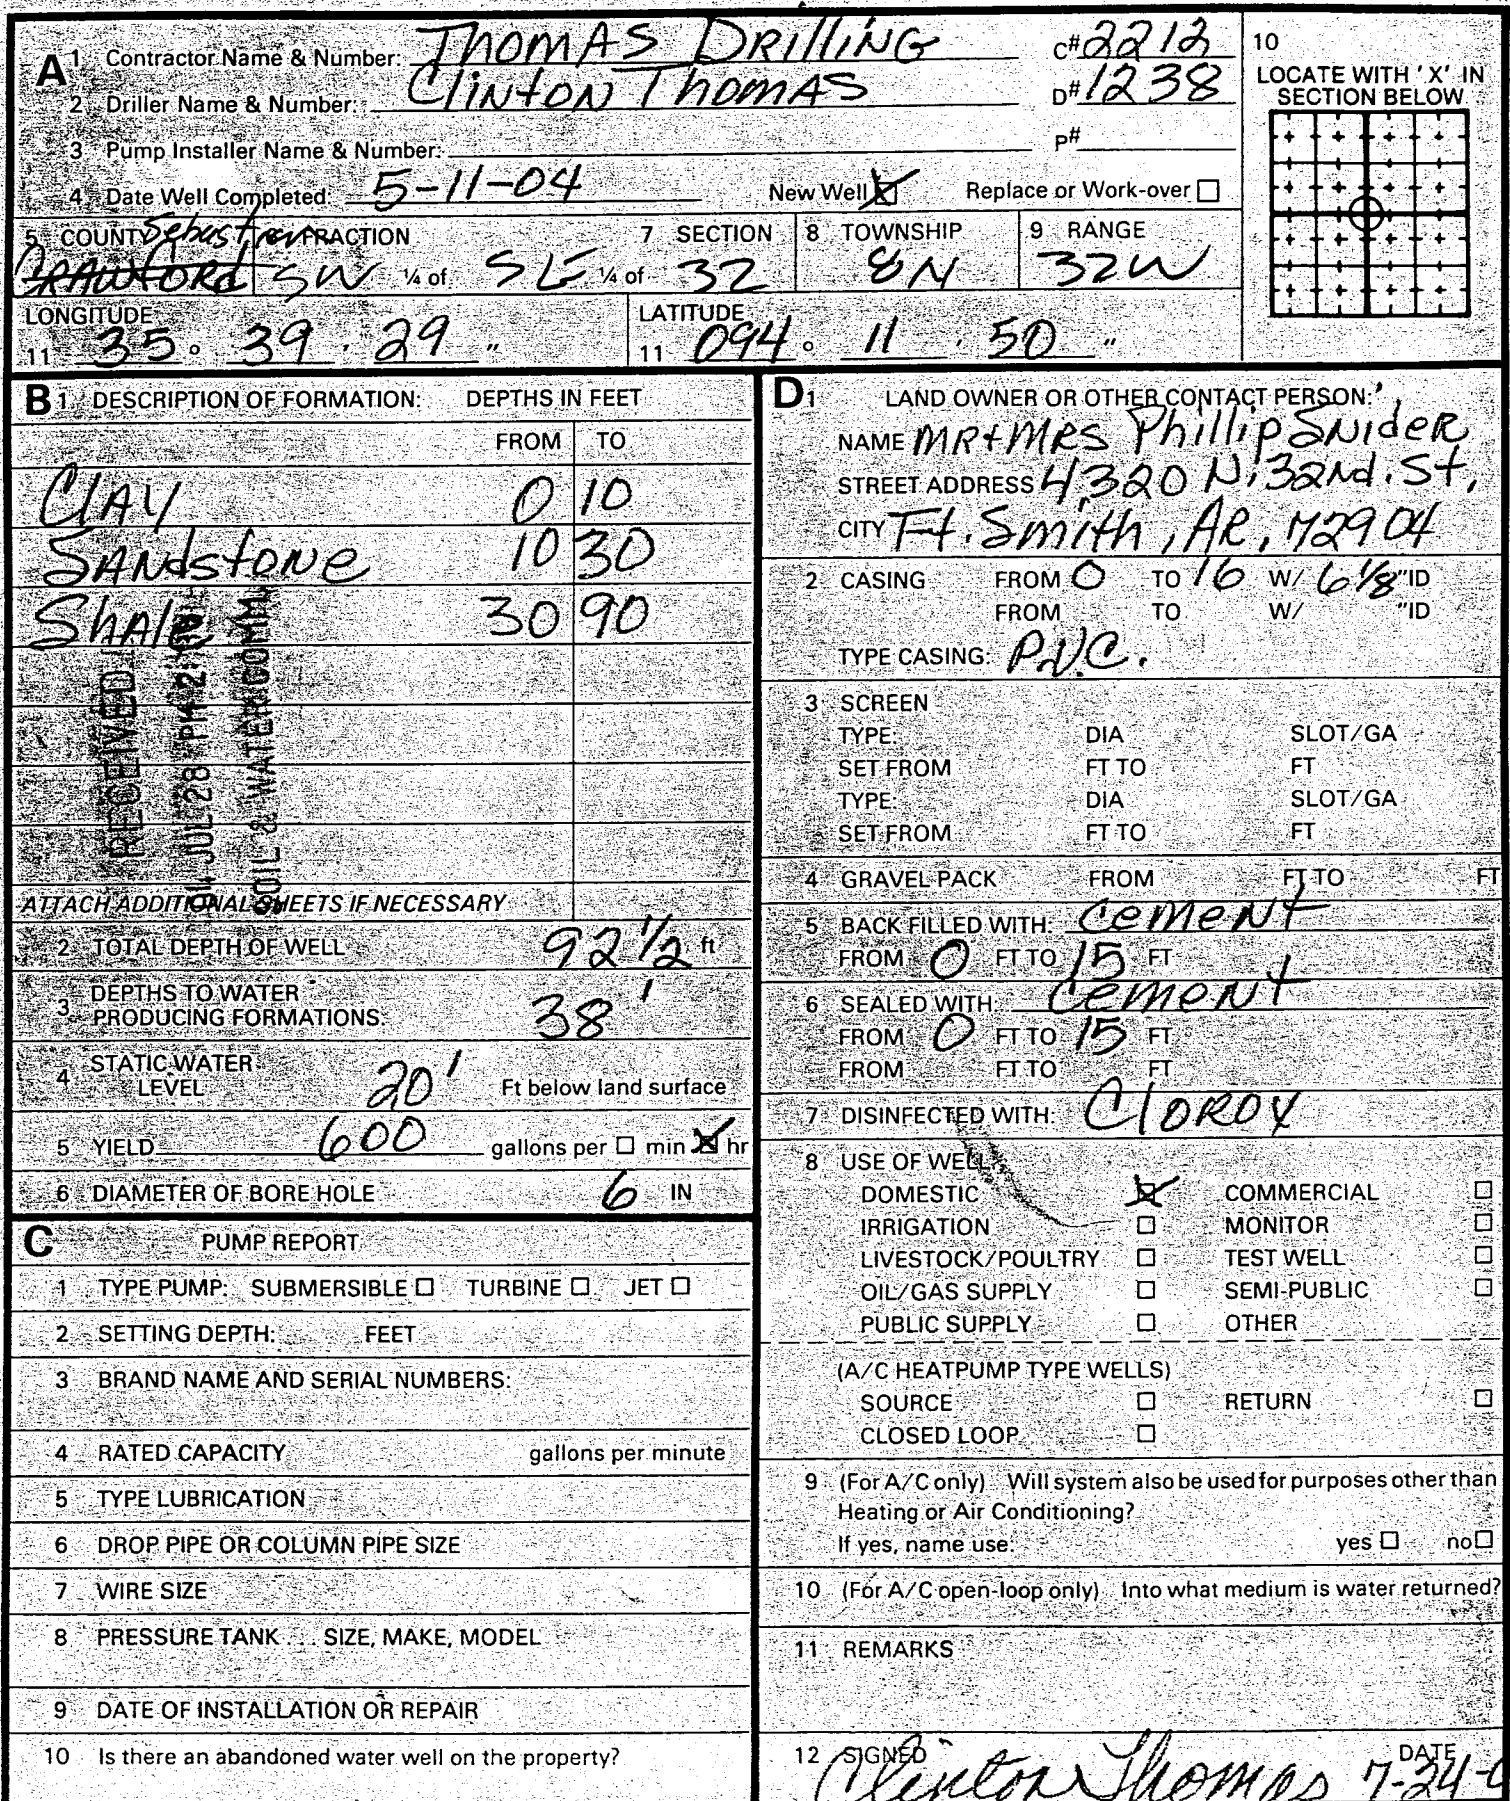 A 1 Contractor Name & Number: THOMAS DRILLING C# 2212
2 Driller Name & Number: Clinton Thomas D# 1238
3 Pump Installer Name & Number: P#
4 Date Well Completed: 5-11-04 New Well ☒ Replace or Work-over ☐
10
LOCATE WITH 'X' IN
SECTION BELOW
5 COUNTY Sebastian CRAWFORD
6 FRACTION SW ¼ of SE ¼ of
7 SECTION 32
8 TOWNSHIP 8N
9 RANGE 32W
LONGITUDE
11 35 ° 39 ' 29 "
LATITUDE
11 094 ° 11 ' 50 "
B 1 DESCRIPTION OF FORMATION: DEPTHS IN FEET
FROM TO
CLAY 0 10
SANdstONe 10 30
Shale 30 90
RECEIVED
04 JUL 28 PM 2:
SOIL & WATER COMM.
ATTACH ADDITIONAL SHEETS IF NECESSARY
2 TOTAL DEPTH OF WELL 92 1/2 ft
3 DEPTHS TO WATER
PRODUCING FORMATIONS: 38'
4 STATIC WATER
LEVEL 20' Ft below land surface
5 YIELD 600 gallons per ☐ min ☒ hr
6 DIAMETER OF BORE HOLE 6 IN
C PUMP REPORT
1 TYPE PUMP: SUBMERSIBLE ☐ TURBINE ☐ JET ☐
2 SETTING DEPTH: FEET
3 BRAND NAME AND SERIAL NUMBERS:
4 RATED CAPACITY gallons per minute
5 TYPE LUBRICATION
6 DROP PIPE OR COLUMN PIPE SIZE
7 WIRE SIZE
8 PRESSURE TANK . . . SIZE, MAKE, MODEL
9 DATE OF INSTALLATION OR REPAIR
10 Is there an abandoned water well on the property?
D 1 LAND OWNER OR OTHER CONTACT PERSON:
NAME MR + MRS Phillip SNideR
STREET ADDRESS 4320 N. 32Nd. St,
CITY Ft. Smith, AR, 72904
2 CASING FROM 0 TO 16 W/ 6 1/8 "ID
FROM TO W/ "ID
TYPE CASING: P.V.C.
3 SCREEN
TYPE: DIA SLOT/GA
SET FROM FT TO FT
TYPE: DIA SLOT/GA
SET FROM FT TO FT
4 GRAVEL PACK FROM FT TO FT
5 BACK FILLED WITH: CemeNt
FROM 0 FT TO 15 FT
6 SEALED WITH: CemeNt
FROM 0 FT TO 15 FT
FROM FT TO FT
7 DISINFECTED WITH: CloROX
8 USE OF WELL:
DOMESTIC ☒ COMMERCIAL ☐
IRRIGATION ☐ MONITOR ☐
LIVESTOCK/POULTRY ☐ TEST WELL ☐
OIL/GAS SUPPLY ☐ SEMI-PUBLIC ☐
PUBLIC SUPPLY ☐ OTHER
(A/C HEATPUMP TYPE WELLS)
SOURCE ☐ RETURN ☐
CLOSED LOOP ☐
9 (For A/C only) Will system also be used for purposes other than
Heating or Air Conditioning?
If yes, name use: yes ☐ no ☐
10 (For A/C open-loop only) Into what medium is water returned?
11 REMARKS
12 SIGNED Clinton Thomas DATE 7-24-0